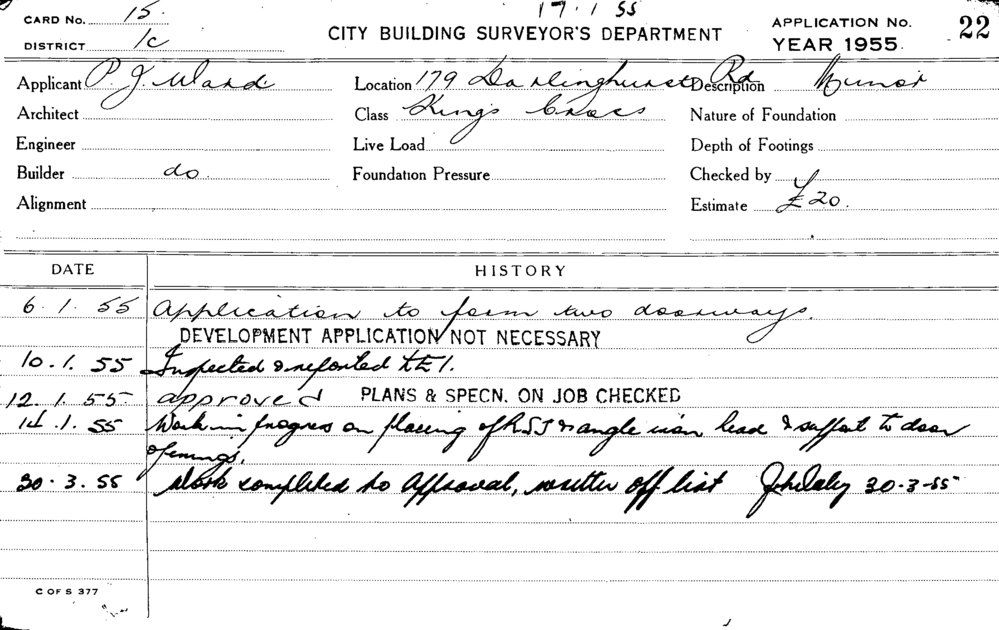 17.1.55
CARD No. 15. CITY BUILDING SURVEYOR'S DEPARTMENT APPLICATION No. 22
DISTRICT 1c YEAR 1955.
Applicant P. J. Ward Location 179 Darlinghurst Rd Description Minor
Architect Class Kings Cross Nature of Foundation
Engineer Live Load Depth of Footings
Builder do Foundation Pressure Checked by
Alignment Estimate £20.
DATE HISTORY
6.1.55 Application to form two doorways.
DEVELOPMENT APPLICATION NOT NECESSARY
10.1.55 Inspected & reported
12.1.55 approved PLANS & SPECN. ON JOB CHECKED
14.1.55 Work in progress on placing of R.S.J & angle iron head & support to door
openings.
30.3.55 Work completed to approval, written off list 30-3-55
C OF S 377